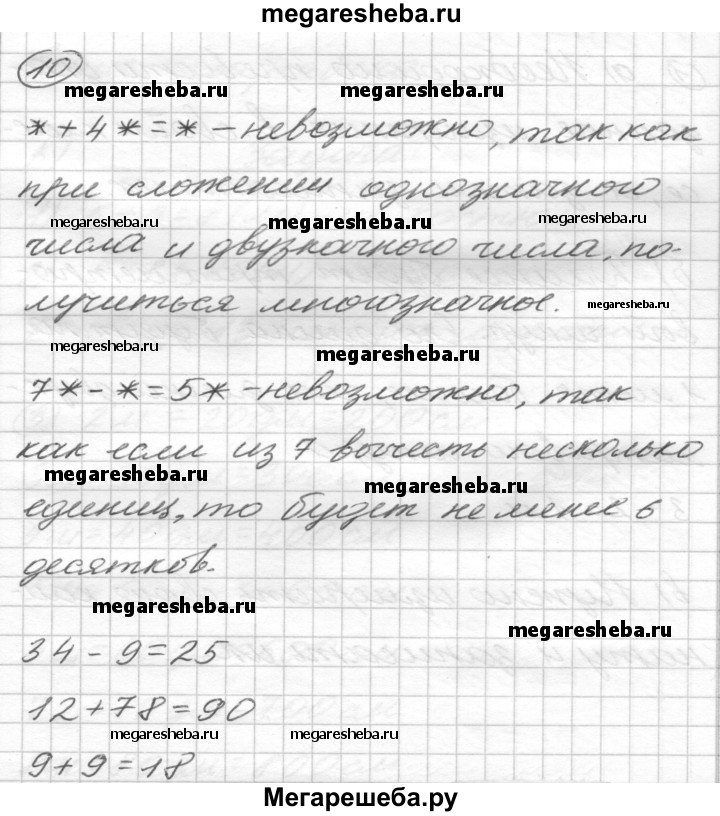 megaresheba.ru
10
megaresheba.ru megaresheba.ru
* + 4* = * - невозможно, так как
при сложении однозначного
megaresheba.ru megaresheba.ru megaresheba.ru
числа и двузначного числа, по-
лучиться многозначное. megaresheba.ru
megaresheba.ru megaresheba.ru
7* - * = 5* - невозможно, так
как если из 7 вычесть несколько
megaresheba.ru megaresheba.ru
единиц, то будет не менее 6
десятков.
megaresheba.ru
megaresheba.ru
34 - 9 = 25
12 + 78 = 90
megaresheba.ru megaresheba.ru
9 + 9 = 18
Мегарешеба.ру